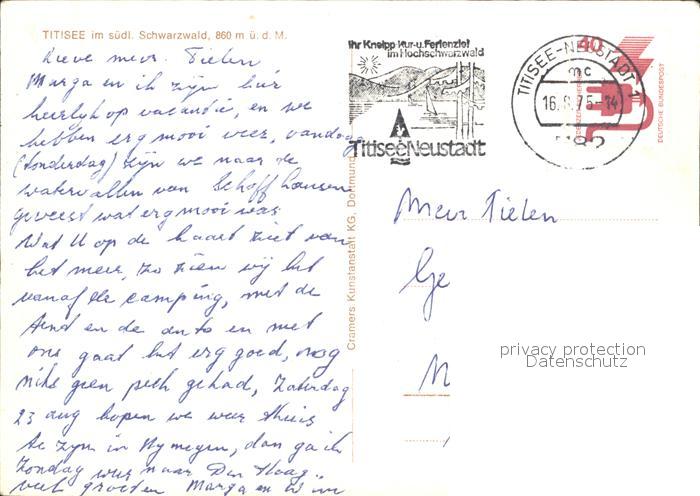 TITISEE im südl. Schwarzwald, 860 m ü. d. M.
Lieve mevr. Tielen
Marga en ik zijn hier
heerlijk op vacantie, en we
hebben erg mooi weer, vandaag
(donderdag) zijn we naar de
watervallen van Schoffhausen
geweest wat erg mooi was
Wat U op de kaart ziet van
het meer, zo zien wij het
vanaf de camping, met de
tent en de auto en met
ons gaat het erg goed, nog
niks geen pech gehad, Zaterdag
23 aug hopen we weer thuis
te zijn in Nymegen, dan ga ik
Zondag weer naar Den Haag
veel groeten Marga en Wim
Cramers Kunstanstalt KG, Dortmund
Ihr Kneipp-Kur-u.Ferienziel
im Hochschwarzwald
Titisee Neustadt
TITISEE-NEUSTADT 1
mc
16.8.75-14
7820
40
DEUTSCHE BUNDESPOST
Mevr Tielen
Ge
N
privacy protection
Datenschutz